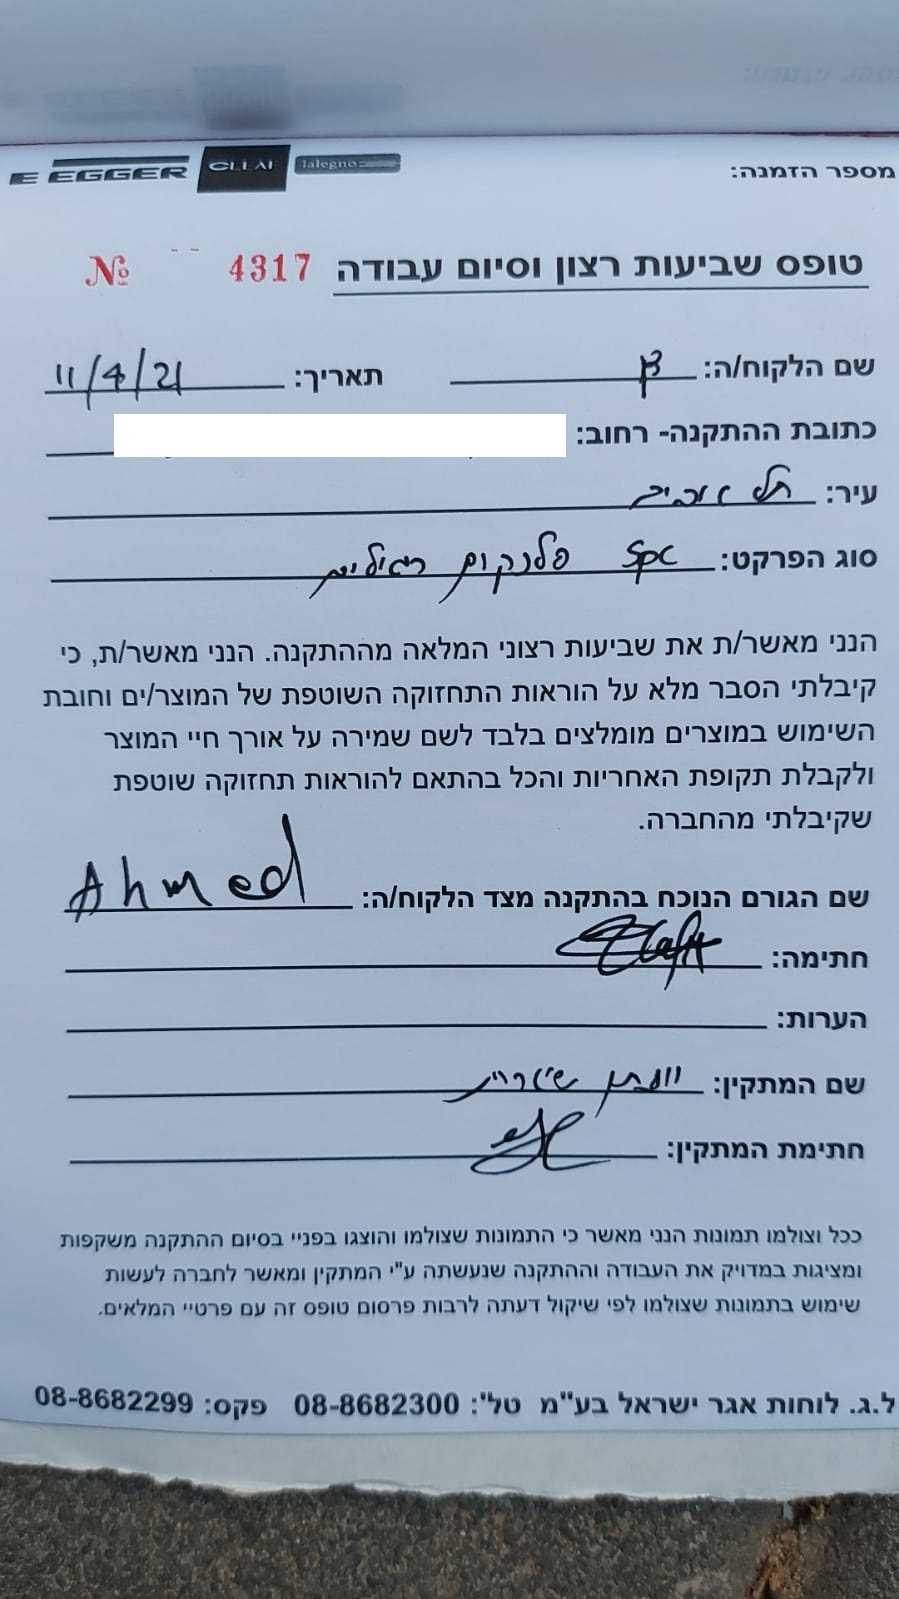 E EGGER CLEAF lalegno מספר הזמנה:
טופס שביעות רצון וסיום עבודה 4317 №
שם הלקוח/ה: תאריך: 11/4/21
כתובת ההתקנה- רחוב:
עיר: תל אביב
סוג הפרקט: SPC פלנקים רגילים
הנני מאשר/ת את שביעות רצוני המלאה מההתקנה. הנני מאשר/ת, כי
קיבלתי הסבר מלא על הוראות התחזוקה השוטפת של המוצר/ים וחובת
השימוש במוצרים מומלצים בלבד לשם שמירה על אורך חיי המוצר
ולקבלת תקופת האחריות והכל בהתאם להוראות תחזוקה שוטפת
שקיבלתי מהחברה.
שם הגורם הנוכח בהתקנה מצד הלקוח/ה: Ahmed
חתימה:
הערות:
שם המתקין:
חתימת המתקין:
ככל וצולמו תמונות הנני מאשר כי התמונות שצולמו והוצגו בפניי בסיום ההתקנה משקפות
ומציגות במדויק את העבודה וההתקנה שנעשתה ע"י המתקין ומאשר לחברה לעשות
שימוש בתמונות שצולמו לפי שיקול דעתה לרבות פרסום טופס זה עם פרטיי המלאים.
ל.ג. לוחות אגר ישראל בע"מ טל': 08-8682300 פקס: 08-8682299